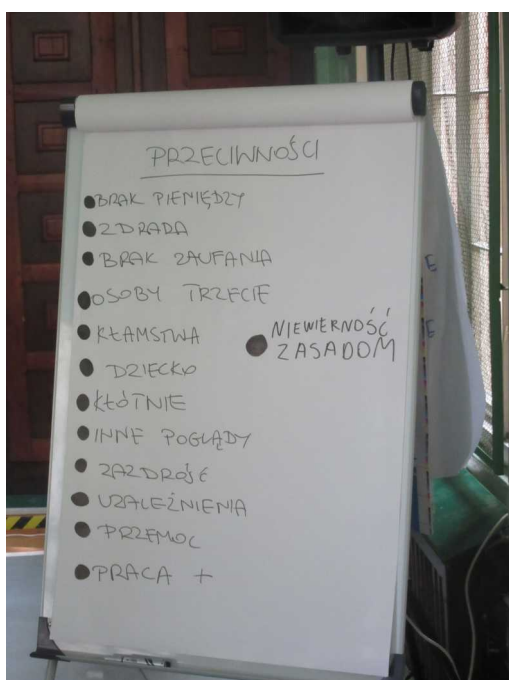 PRZECIWNOŚCI
BRAK PIENIĘDZY
ZDRADA
BRAK ZAUFANIA
OSOBY TRZECIE
KŁAMSTWA
DZIECKO
KŁÓTNIE
INNE POGLĄDY
ZAZDROŚĆ
UZALEŻNIENIA
PRZEMOC
PRACA +
NIEWIERNOŚĆ
ZASADOM
E
E